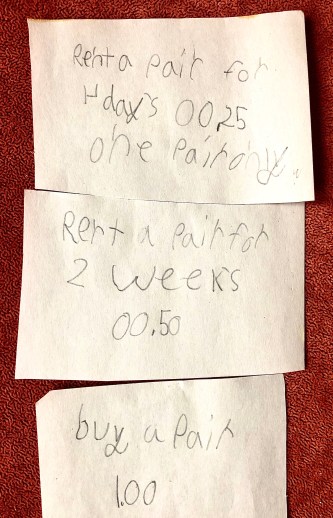 Rent a pair for
4 day's 00,25
one Pair only.
Rent a Pair for
2 weeks
00.50
buy a Pair
1.00